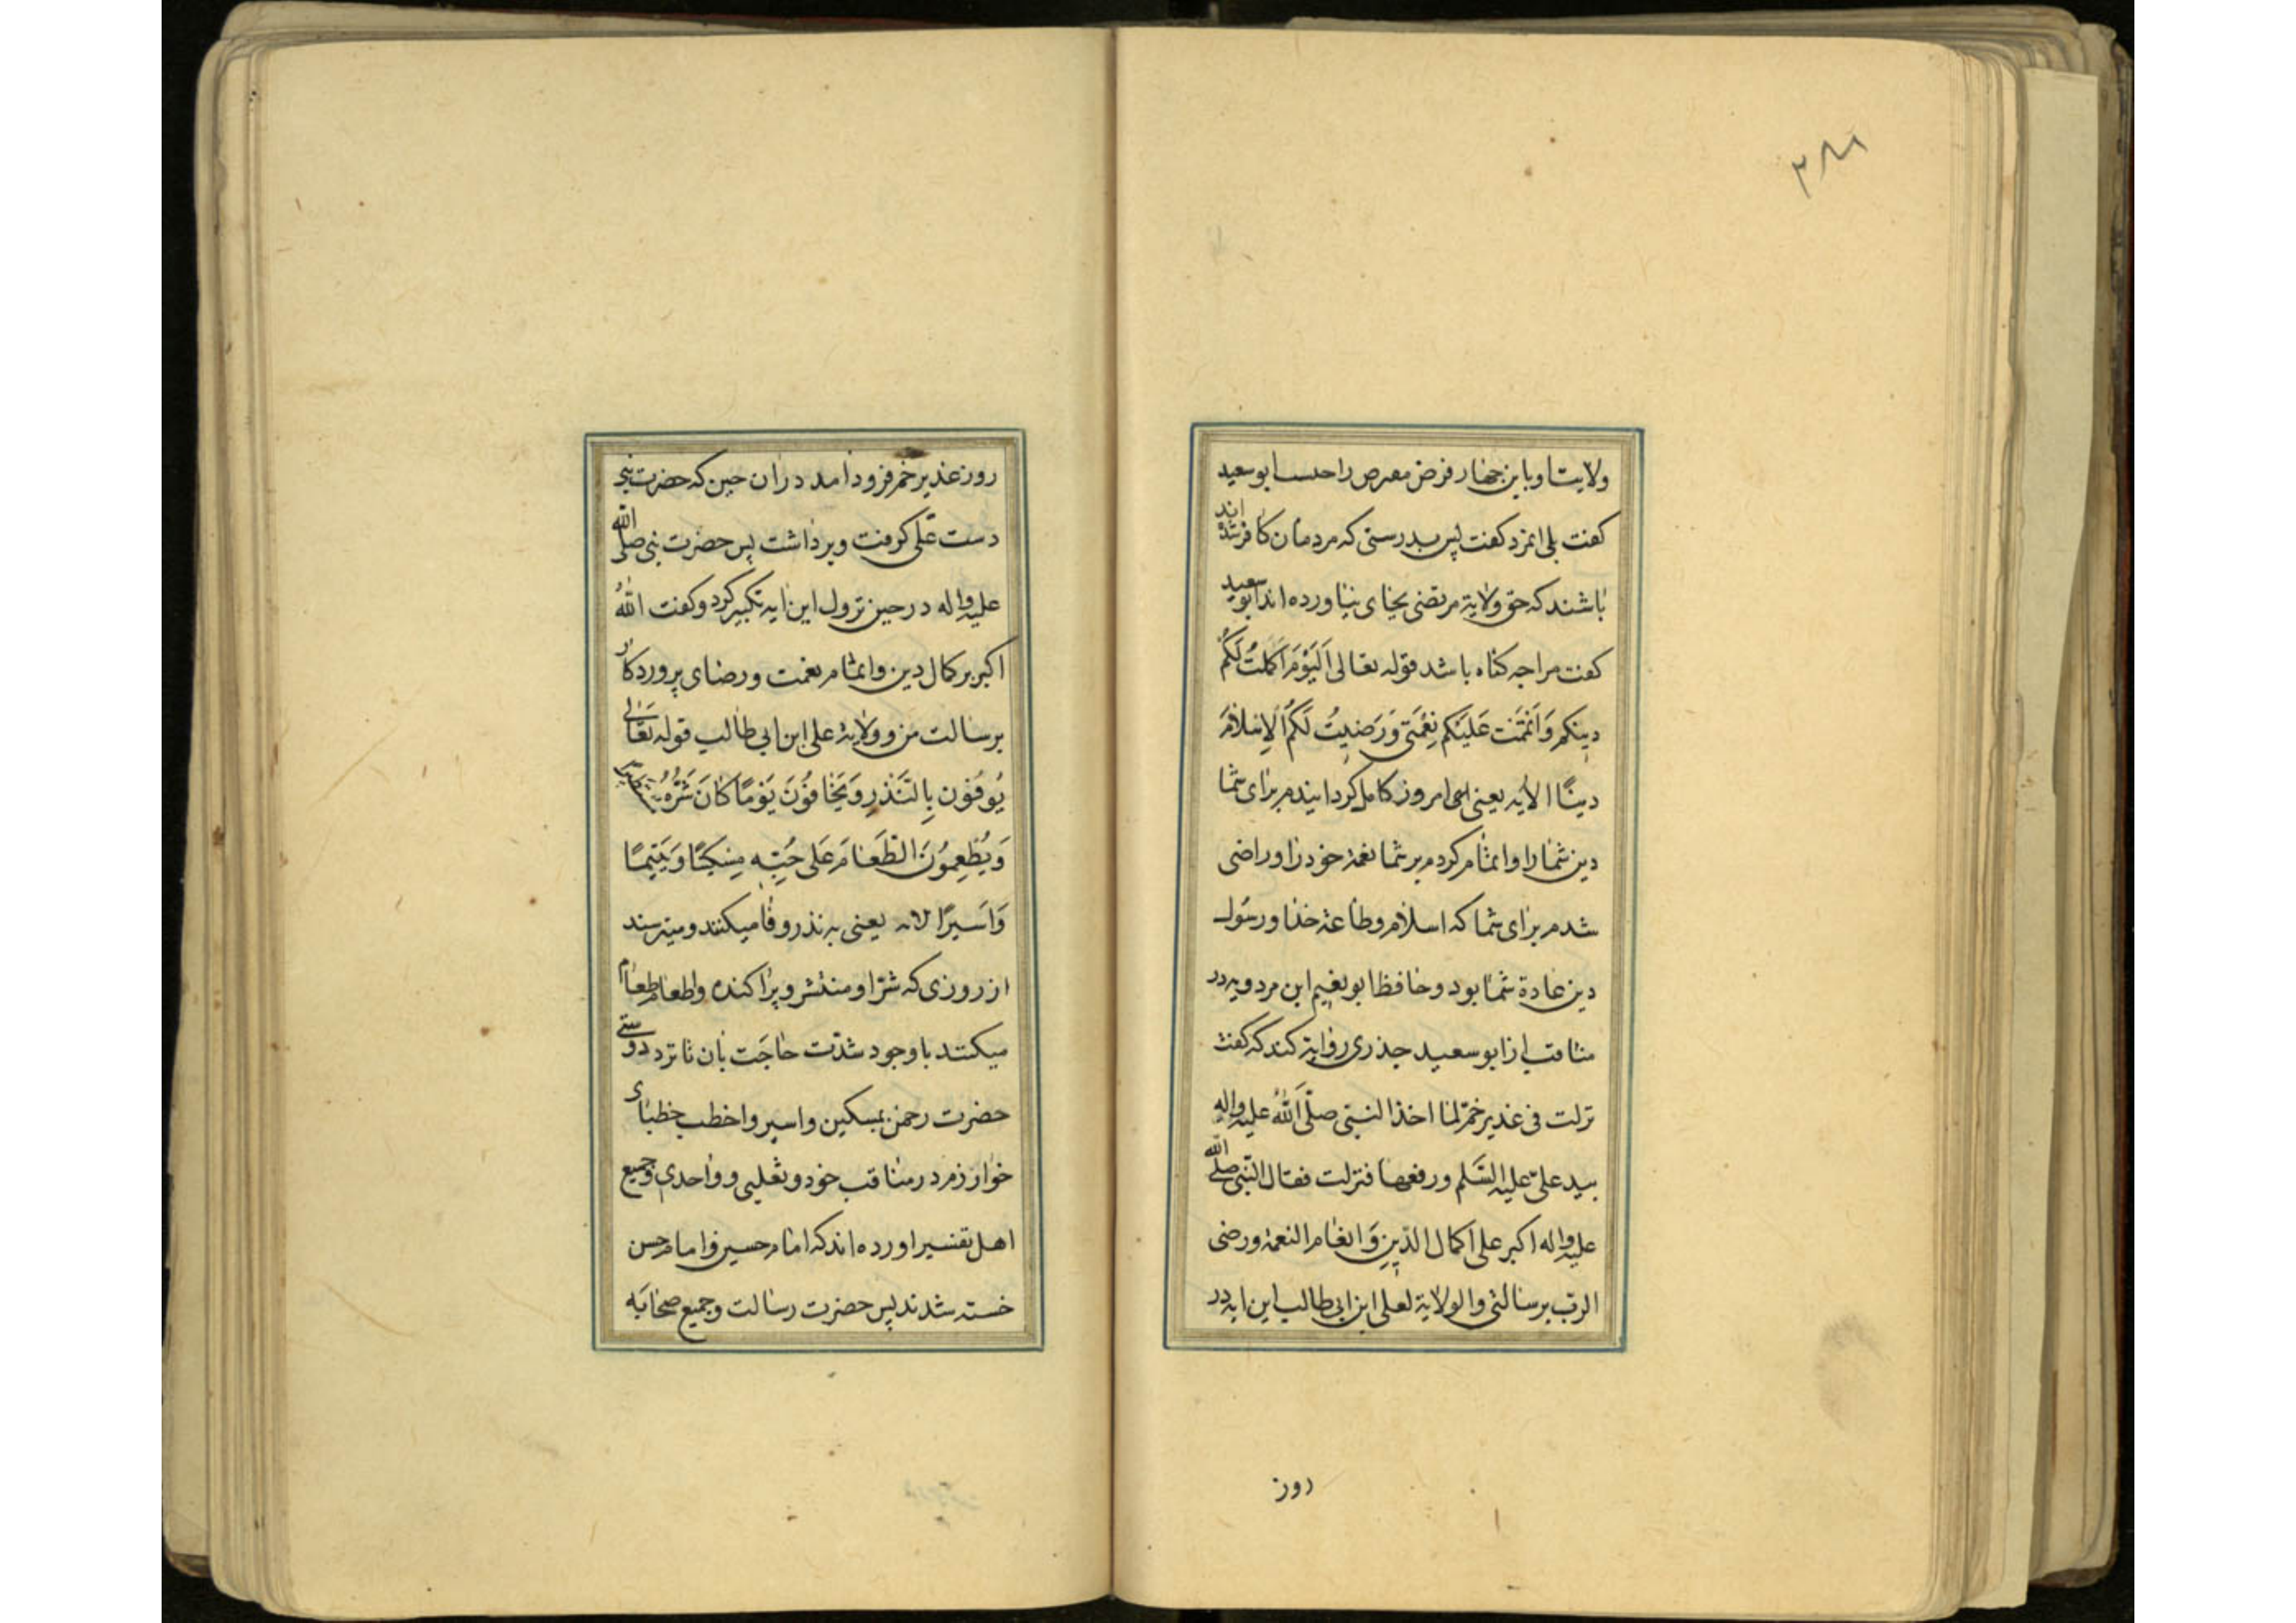 ۳۸۸
ولایت او باین جهار فرض معرض را حسب ابو سعید
کفت بلی ایمزد کفت پس بدرستی که مردمان کافر شده اند
باشند که حق ولایة مرتضی بجای نیاورده اند ابو سعید
کفت مراجه کناه باشد قوله تعالی اَلْیَوْمَ اَکْمَلْتُ لَکُمْ
دینکم وَاَتْمَمْت عَلَیْکم نِعْمَتی وَرَضیتُ لَکُمُ الْاِسْلامَ
دینًا الایه یعنی امروز کامل کردانیدم برای شما
دین شما را و اتمام کردم بر شما نعمة خود را و راضی
شدم برای شما که اسلام و طاعة خدا و رسول
دین عادة شما بود و حافظ ابو نعیم ابن مردویه در
مناقب از ابو سعید جذری روایة کند که کفت
نزلت فی غدیر خم لما اخذ النبی صلّی اللهُ علیه واله
بید علیّ علیه السَّلم ورفعها فنزلت فقال النبی صلّی الله
علیه واله اکبر علی اکمال الدّین وَاتمام النعمة ورضی
الربّ برسالتی والولایة لعلی ابن ابی طالب این ایه در
روز
روز غدیر خم فرود امد در ان حین که حضرت نبی
دست علی کرفت و برداشت پس حضرت نبی صلّی الله
علیه واله در حین نزول این ایه تکبیر کرد و کفت اللهُ
اکبر بر کمال دین و اتمام نعمت و رضای پروردکار
برسالت من و ولایة علی ابن ابی طالب قوله تعَالی
یُوفُون بِالنَّذْرِ وَیَخافُونَ یَوْمًا کانَ شَرُّهُ مستطیرا
وَیُطْعِمُونَ الطَّعامَ عَلی حُبِّه مِسْکینًا وَیَتیمًا
وَاَسیرًا الایه یعنی به نذر وفا میکنند و میترسند
از روزی که شرّ او منتشر و پراکنده و اطعام طعام
میکنند با وجود شدّت حاجَت بان نا نزد دوستی
حضرت رحمن بمسکین و اسیر و اخطب خطبای
خوارزم در مناقب خود و ثعلبی و واحدی و جمیع
اهل تفسیر اورده اند که امام حسین و امام حسن
خسته شدند پس حضرت رسالت و جمیع صحابَه